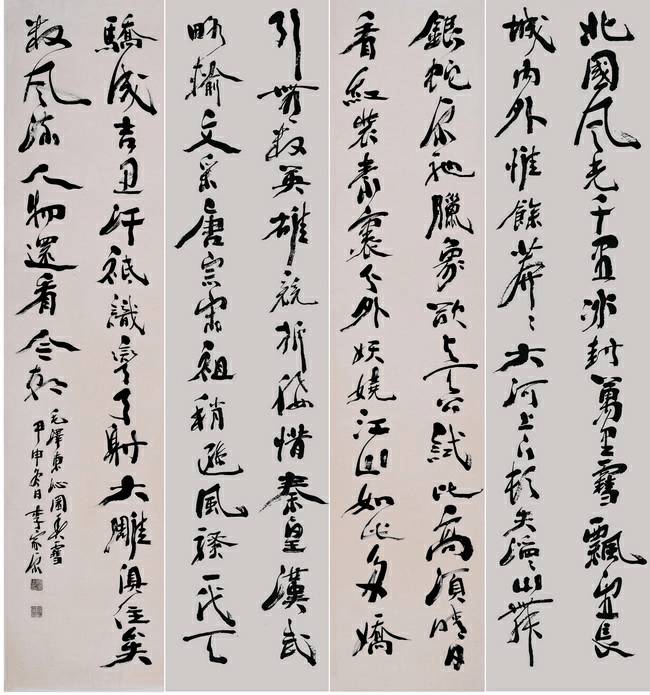 北國風光千里冰封萬里雪飄望長
城内外惟餘莽〻大河上下頓失滔〻山舞
銀蛇原馳臘象欲與天公試比高須晴日
看紅裝素裹分外妖嬈江山如此多嬌
引無數英雄競折腰惜秦皇漢武
略輸文采唐宗宋祖稍遜風騷一代天
驕成吉思汗祇識彎弓射大雕俱往矣
數風流人物還看今朝
毛澤東沁園春雪
甲申冬日李家原